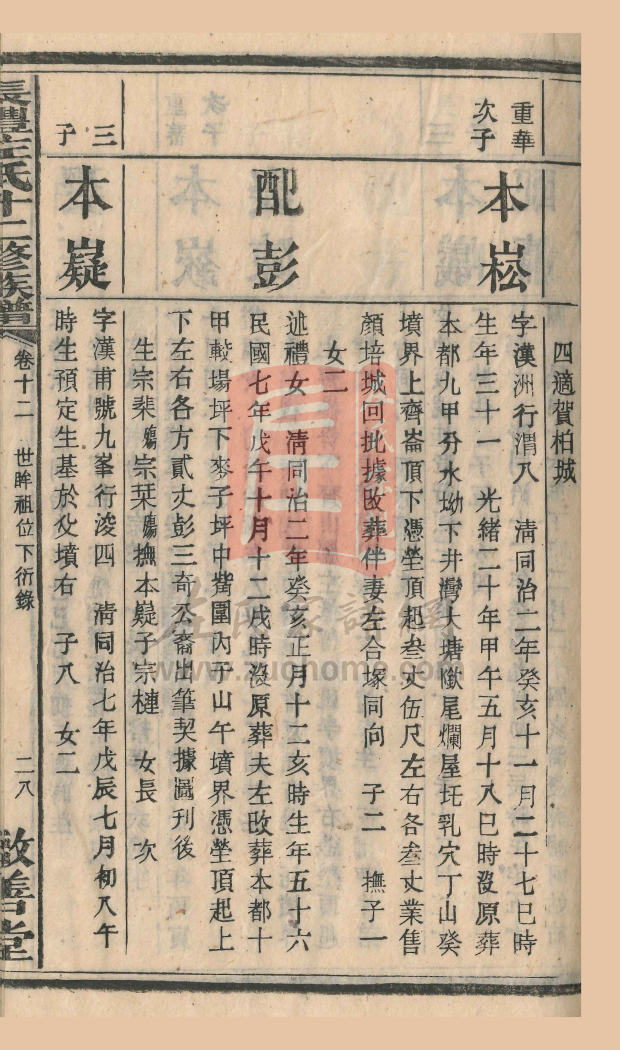 四適賀柏城
重華
次子
本崧
字漢洲行渭八 清同治二年癸亥十一月二十七巳時
生年三十一 光緒二十年甲午五月十八巳時沒原葬
本都九甲分水坳下井灣大塘墈尾爛屋圫乳穴丁山癸
墳界上齊崙頂下憑塋頂起叁丈伍尺左右各叁丈業售
顏培城回批據改葬伴妻左合塚同向 子二 撫子一
女二
配彭
述禮女 清同治二年癸亥正月十二亥時生年五十六
民國七年戊午十月十二戌時沒原葬夫左改葬本都十
甲較場坪下麥子坪中嘴圍內子山午墳界憑塋頂起上
下左右各方貳丈彭三奇公裔出筆契據圖刊後
生宗棐殤宗棻殤撫本嶷子宗槤 女長 次
三子
本嶷
字漢甫號九峯行浚四 清同治七年戊辰七月初八午
時生預定生基於父墳右 子八 女二
長豐左氏十二修族譜
卷十二 世眸祖位下衍錄
二八
敦善堂
左氏家譜網
www.zuohome.com